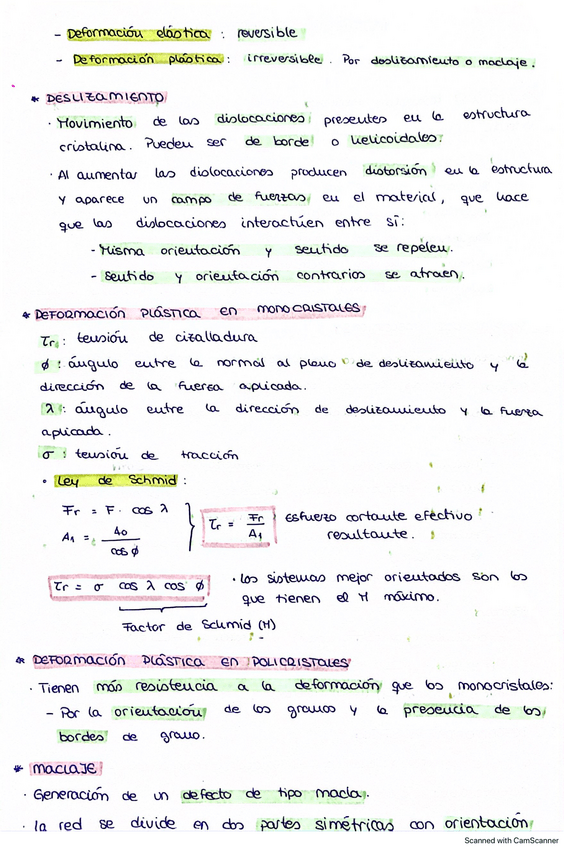 - Deformación elástica : reversible
- Deformación plástica : irreversible. Por deslizamiento o maclaje.
* DESLIZAMIENTO
· Movimiento de las dislocaciones presentes en la estructura
cristalina. Pueden ser de borde o helicoidales.
· Al aumentar las dislocaciones producen distorsión en la estructura
y aparece un campo de fuerzas en el material, que hace
que las dislocaciones interactúen entre sí:
- Misma orientación y sentido se repelen.
- Sentido y orientación contrarios se atraen.
* DEFORMACIÓN PLÁSTICA EN MONOCRISTALES
τr : tensión de cizalladura
φ : ángulo entre la normal al plano de deslizamiento y la
dirección de la fuerza aplicada.
λ : ángulo entre la dirección de deslizamiento y la fuerza
aplicada.
σ : tensión de tracción
• Ley de Schmid :
Fr = F · cos λ
A1 = A0 / cos φ
τr = Fr / A1
Esfuerzo cortante efectivo
resultante.
τr = σ cos λ cos φ
Factor de Schmid (M)
· Los sistemas mejor orientados son los
que tienen el M máximo.
* DEFORMACIÓN PLÁSTICA EN POLICRISTALES
· Tienen más resistencia a la deformación que los monocristales:
- Por la orientación de los granos y la presencia de los
bordes de grano.
* MACLAJE
· Generación de un defecto de tipo macla.
· La red se divide en dos partes simétricas con orientación
Scanned with CamScanner